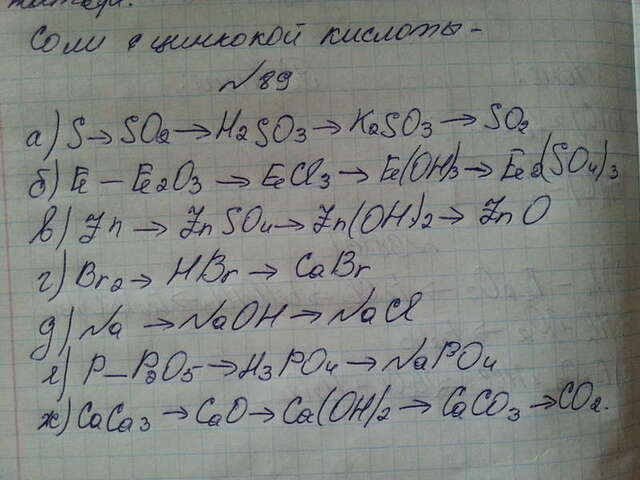 Соли с цинковой кислоты -
№89
а) S → SO2 → H2SO3 → K2SO3 → SO2
б) Fe - Fe2O3 → FeCl3 → Fe(OH)3 → Fe2(SO4)3
в) Zn → ZnSO4 → Zn(OH)2 → ZnO
г) Br2 → HBr → CaBr
д) Na → NaOH → NaCl
е) P - P3O5 → H3PO4 → NaPO4
ж) CaCa3 → CaO → Ca(OH)2 → CaCO3 → CO2.